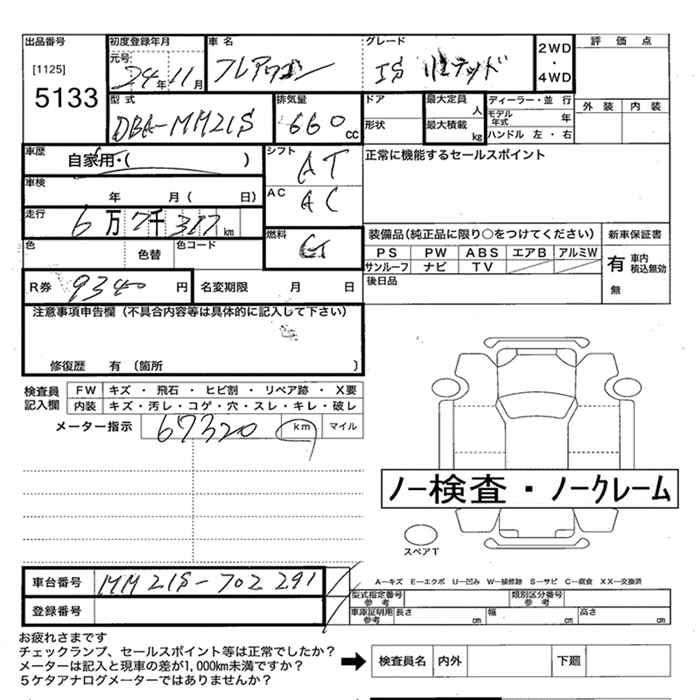 出品番号 初度登録年月 車名 グレード 2WD・4WD 評価点
[1125] 元号
5133 24年11月 フレアワゴン XS リミテッド
型式 排気量 ドア 最大定員 人 ディーラー・並行 外装 内装
DBA-MM21S 660cc 形状 最大積載 kg モデル年式 年
ハンドル 左・右
車歴 自家用・( ) シフト AT 正常に機能するセールスポイント
車検 年 月( 日) AC AC
走行 6万7千317km 燃料 G 装備品(純正品に限り○をつけてください) 新車保証書
色 色替 色コード PS PW ABS エアB アルミW 有 車内積込無効
サンルーフ ナビ TV 無
R券 9340円 名変期限 月 日 後日品
注意事項申告欄(不具合内容等は具体的に記入して下さい)
修復歴 有(箇所 )
検査員記入欄 FW キズ・飛石・ヒビ割・リペア跡・X要
内装 キズ・汚レ・コゲ・穴・スレ・キレ・破レ
メーター指示 67320 km マイル
ノー検査・ノークレーム
スペアT
車台番号 MM21S-702291 A-キズ E-エクボ U-凹み W-補修跡 S-サビ C-腐食 XX-交換済
型式指定番号 参考 類別区分番号 参考
登録番号 車庫証明用 参考 長さ cm 幅 cm 高さ cm
お疲れさまです
チェックランプ、セールスポイント等は正常でしたか?
メーターは記入と現車の差が1,000km未満ですか? 検査員名 内外 下廻
5ケタアナログメーターではありませんか?